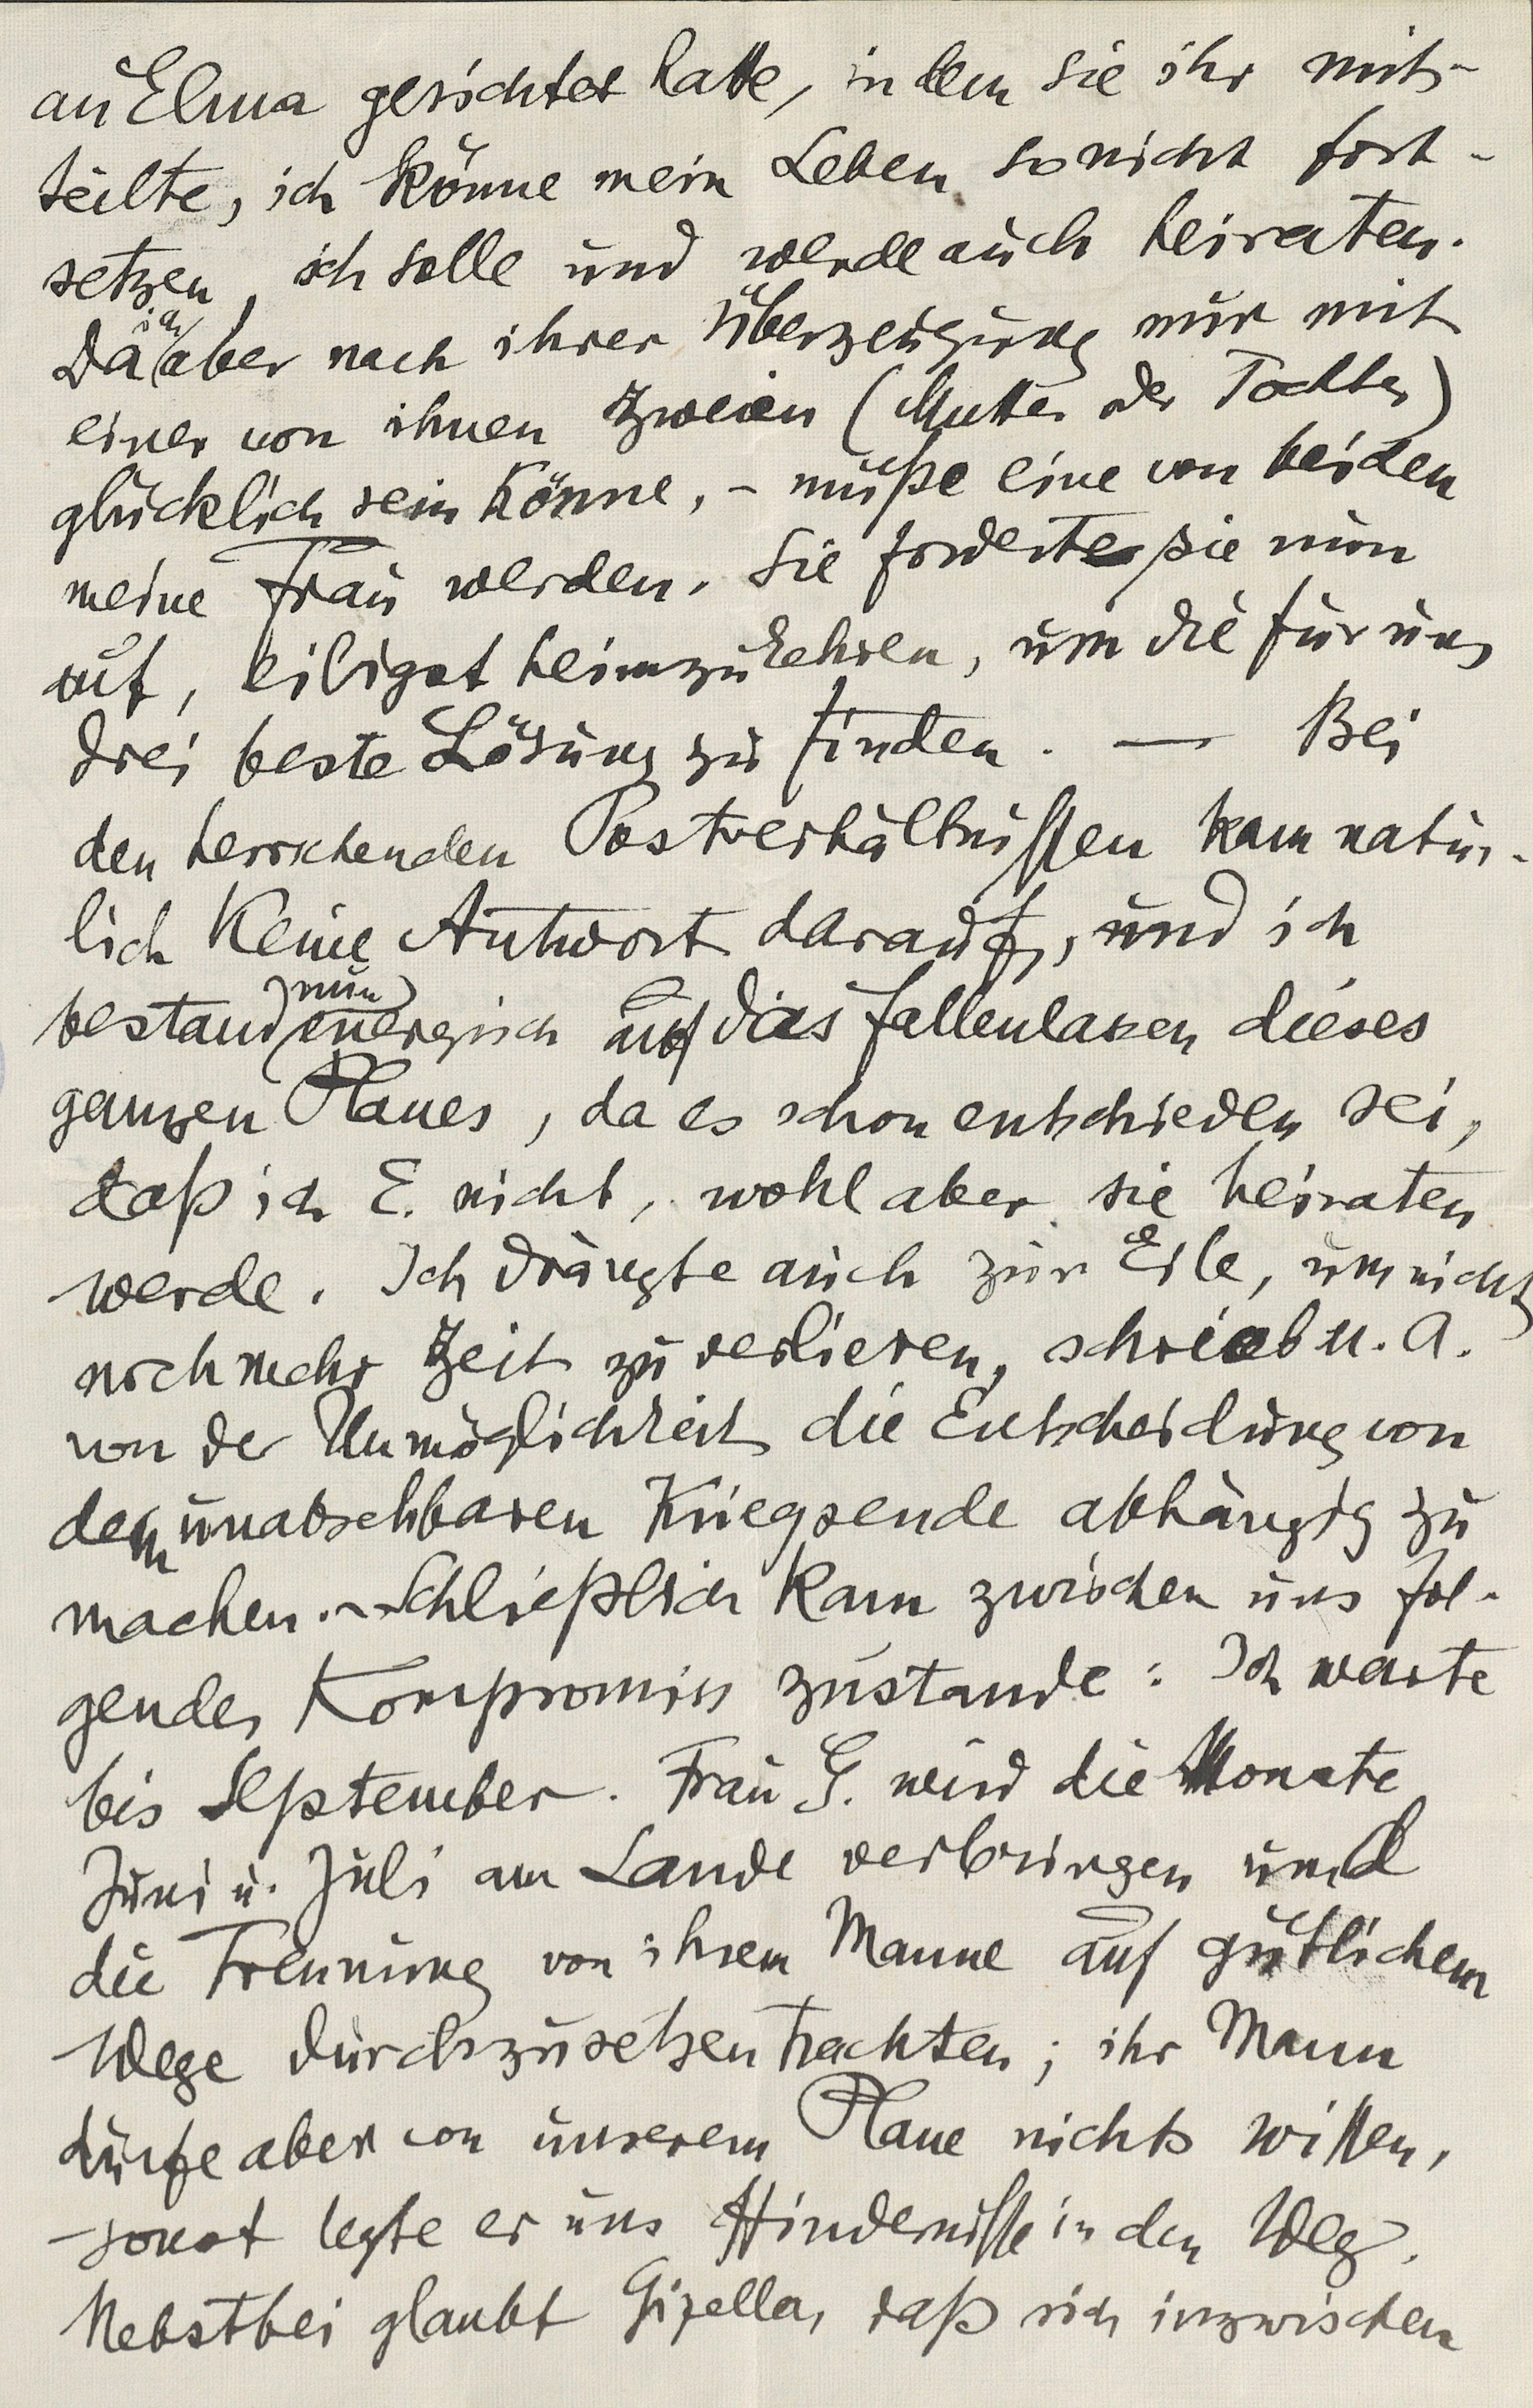 an Elma gerichtet hatte, in dem sie ihr mit-
teilte, ich könne mein Leben so nicht fort-
setzen, ich solle und werde auch heiraten.
Da ich aber nach ihrer Überzeugung nur mit
einer von ihnen zweien (Mutter oder Tochter)
glücklich sein könne, – müße eine von beiden
meine Frau werden. Sie forderte sie nun
auf, eiligst heimzukehren, um die für uns
drei beste Lösung zu finden. — Bei
den herrschenden Postverhältnissen kam natür-
lich keine Antwort darauf, und ich
bestand nun energisch auf das Fallenlassen dieses
ganzen Planes, da es schon entschieden sei,
daß ich E. nicht, wohl aber sie heiraten
werde. Ich drängte auch zur Eile, um nicht
noch mehr Zeit zu verlieren, schrieb u. A.
von der Unmöglichkeit die Entscheidung von
dem unabsehbaren Kriegsende abhängig zu
machen. – Schließlich kam zwischen uns fol-
gendes Kompromiss zustande: Ich warte
bis September. Frau G. wird die Monate
Juni u. Juli am Lande verbringen und
die Trennung von ihrem Manne auf gütlichem
Wege durchzusetzen trachten; ihr Mann
dürfe aber von unserem Plane nichts wissen,
– sonst legte er uns Hindernisse in den Weg.
Nebstbei glaubt Gizella, daß sich inzwischen